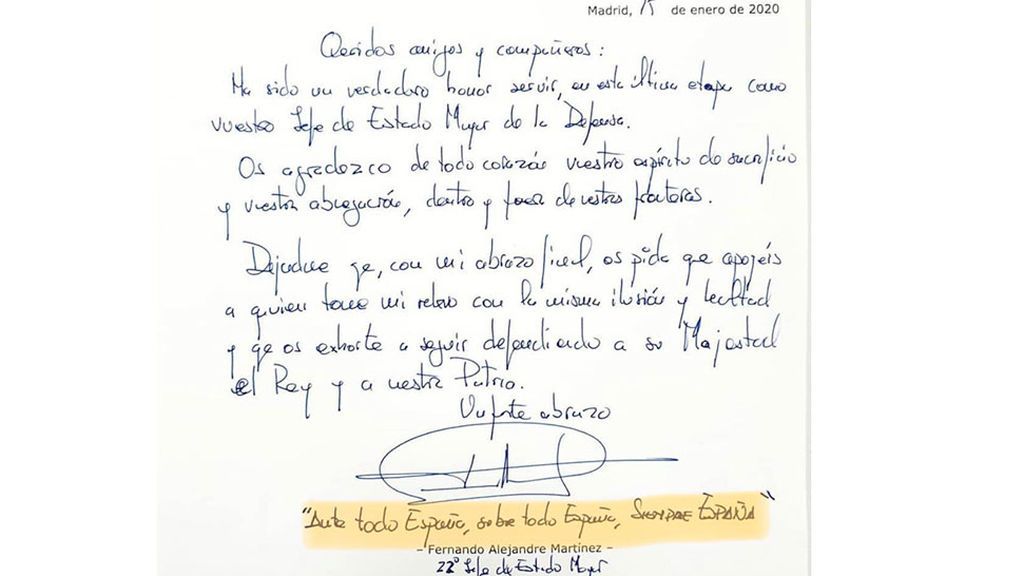 Madrid, 15 de enero de 2020
Queridos amigos y compañeros:
Ha sido un verdadero honor servir, en esta última etapa como
vuestro Jefe de Estado Mayor de la Defensa.
Os agradezco de todo corazón vuestro espíritu de sacrificio
y vuestra abnegación, dentro y fuera de nuestras fronteras.
Dejadme qe, con mi abrazo final, os pida que apoyéis
a quien tome mi relevo con la misma ilusión y lealtad
y qe os exhorte a seguir defendiendo a su Majestad
el Rey y a nuestra Patria.
Un fuerte abrazo
"Ante todo España, sobre todo España, SIEMPRE ESPAÑA"
– Fernando Alejandre Martínez –
22º Jefe de Estado Mayor